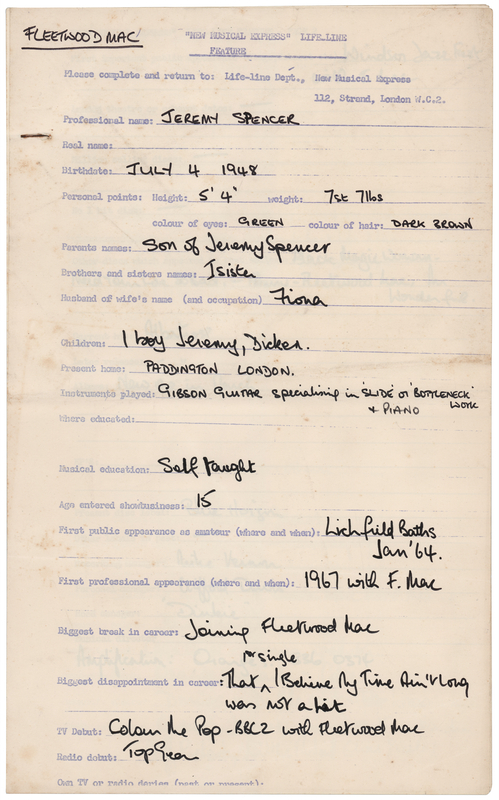 FLEETWOOD MAC
"NEW MUSICAL EXPRESS" LIFE-LINE
FEATURE
Please complete and return to: Life-line Dept., New Musical Express
112, Strand, London W.C.2.
Professional name: JEREMY SPENCER
Real name:
Birthdate: JULY 4 1948
Personal points: Height: 5' 4" weight: 7st 7lbs
colour of eyes: GREEN colour of hair: DARK BROWN
Parents names: Son of Jeremy Spencer
Brothers and sisters names: 1 sister
Husband of wife's name (and occupation) Fiona
Children: 1 boy Jeremy, Dicken.
Present home: PADDINGTON LONDON.
Instruments played: GIBSON GUITAR specialising in 'SLIDE' or 'BOTTLENECK' WORK
& PIANO
Where educated:
Musical education: Self taught
Age entered showbusiness: 15
First public appearance as amateur (where and when): Lichfield Baths
Jan '64.
First professional appearance (where and when): 1967 with F. Mac
Biggest break in career: Joining Fleetwood Mac
1st single
Biggest disappointment in career: That I Believe My Time Ain't Long
was not a hit
TV Debut: Colour Me Pop - BBC2 with Fleetwood Mac
Radio debut: Top Gear
Own TV or radio series (past or present):